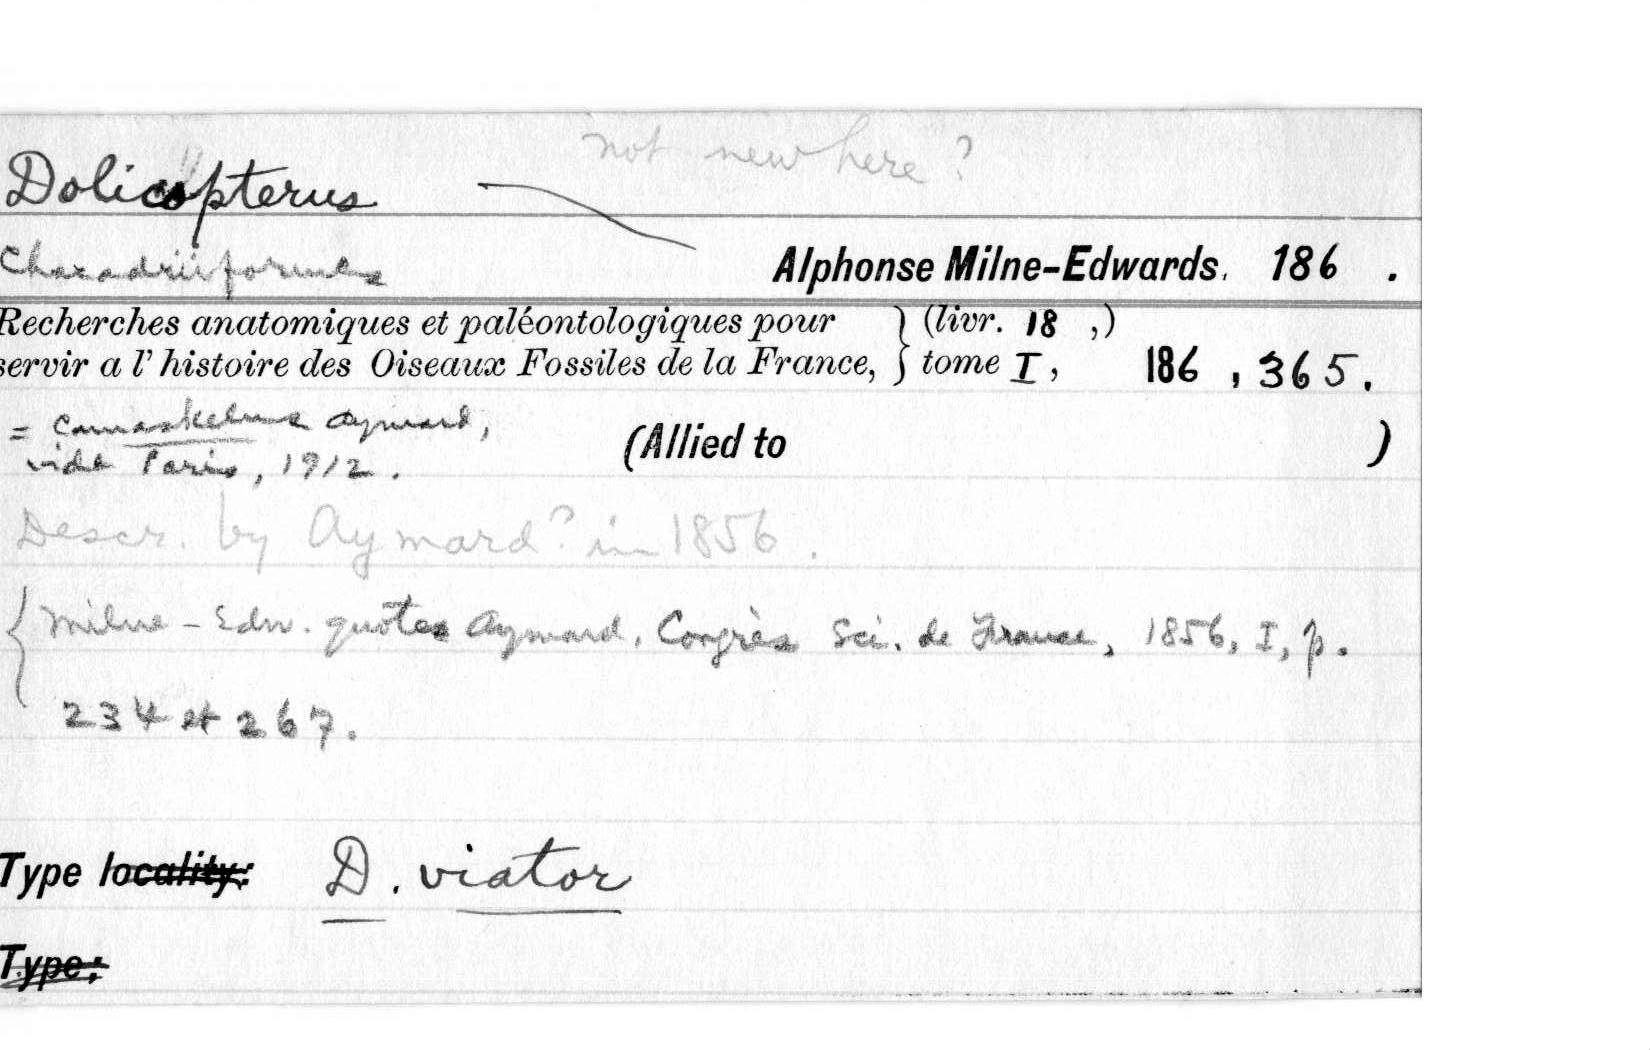 not new here?
Dolicopterus
Charadriiformes
Alphonse Milne-Edwards, 186 .
Recherches anatomiques et paléontologiques pour } (livr. 18 ,)
servir a l' histoire des Oiseaux Fossiles de la France, } tome I, 186 , 365.
= Camaskelus Aymard,
vide Paris, 1912.
(Allied to )
Descr. by Aymard? in 1856.
{ Milne-Edw. quotes Aymard, Congrès Sci. de France, 1856, I, p.
234 et 267.
Type locality: D. viator
Type: